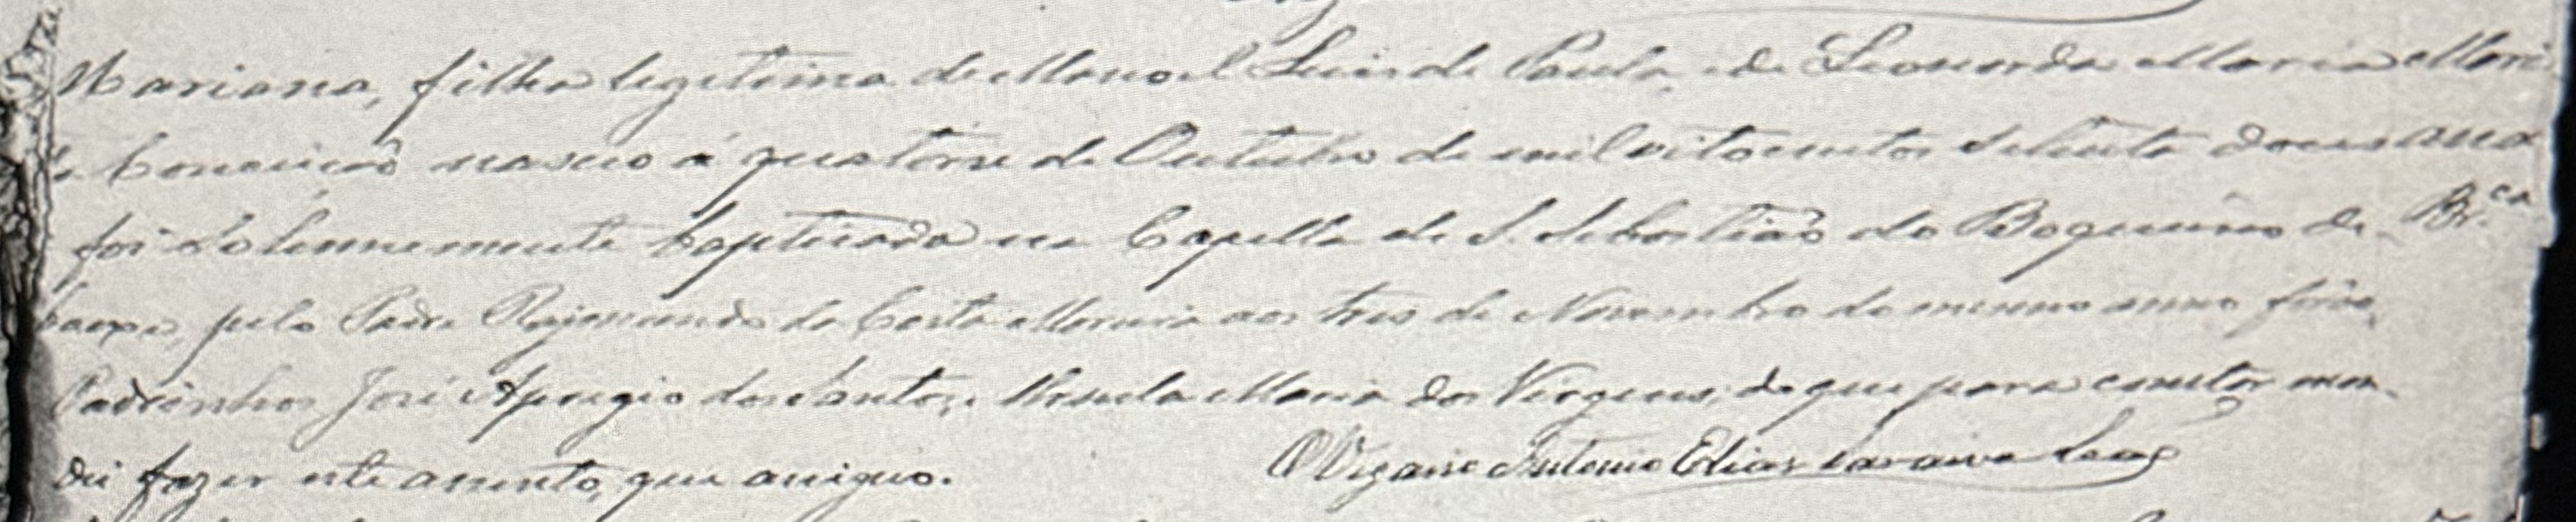 Mariana, filha legitima de Manoel Luis de Paula, e de Leonarda Maria Mari
da Conceição nasceo á quatorse de Outubro de mil oitocentos setenta dous annos
foi solennemente baptisada na Capella de S. Sebastião do Boqueirão de Br.ca
pelo Padre Rajemundo da Costa Moreira aos tres de Novembro do mesmo anno forão
Padrinhos José Aprigio dos Santos, e Ursula Maria das Virgens, do que para constar man-
dei fazer este assento, que assigno.
O Vigario Antonio Elias Saraiva Leão